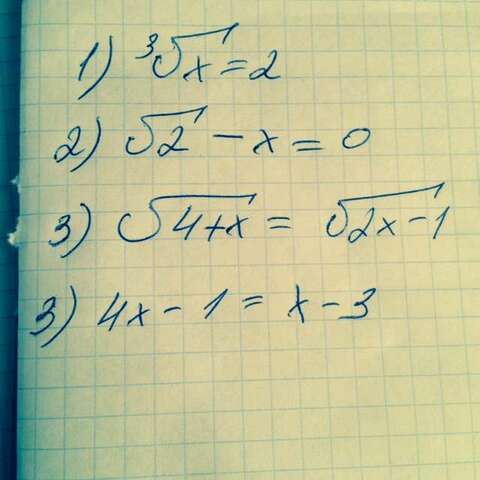 1) ³√x = 2
2) √2 - x = 0
3) √4+x = √2x-1
3) 4x - 1 = x - 3